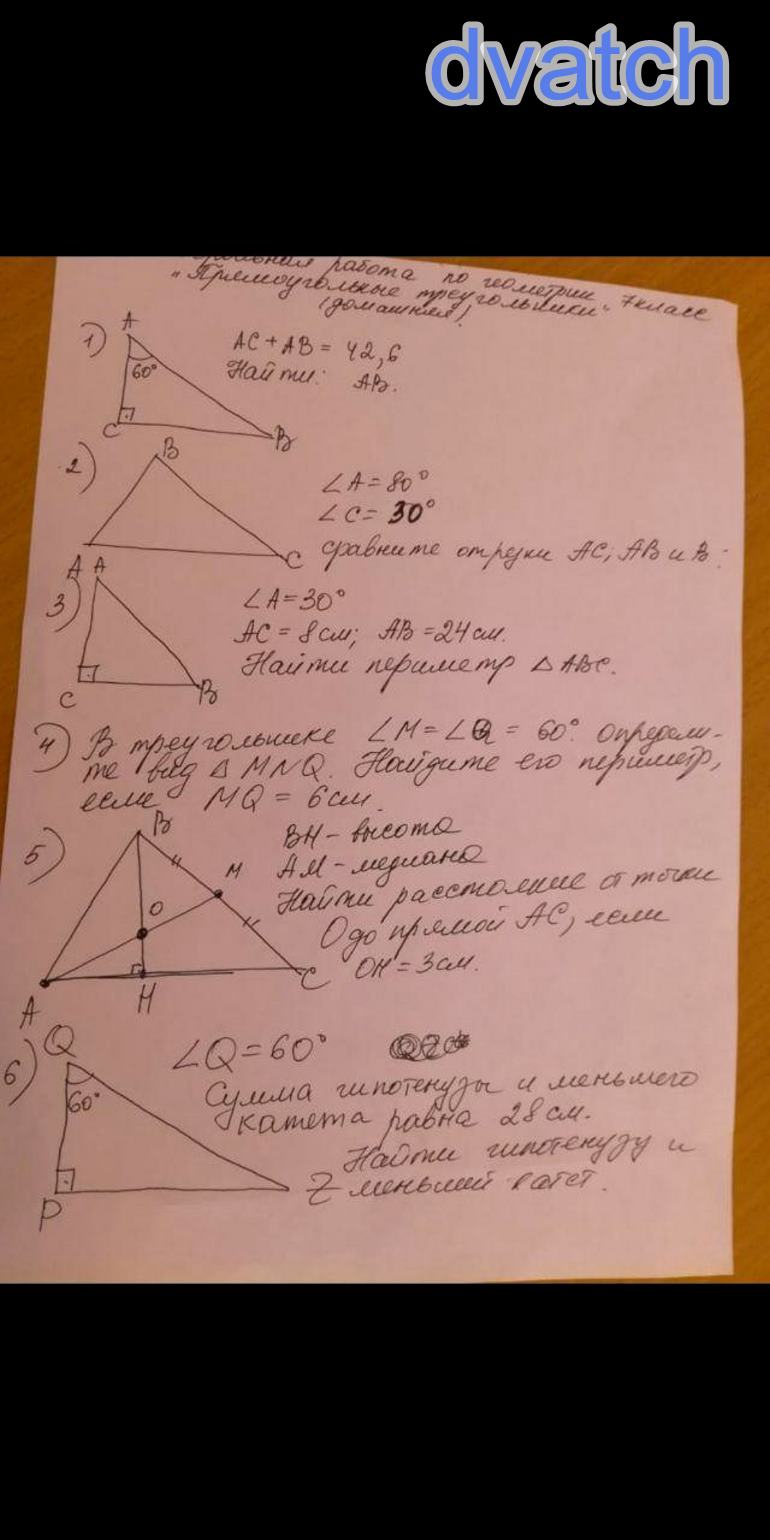 dvatch
работа по геометрии
"Прямоугольные треугольники" 7 класс
(домашняя)
1) A
60°
C
B
AC + AB = 42,6
Найти: AB.
2) B
A
C
∠A = 80°
∠C = 30°
сравните отрезки AC; AB и B
3) A
C
B
∠A = 30°
AC = 8 см; AB = 24 см.
Найти периметр △ ABC.
4) В треугольнике ∠M = ∠Q = 60°. Определи-
те вид △ MNQ. Найдите его периметр,
если MQ = 6 см.
5) B
M
O
A
H
C
BH - высота
AM - медиана
Найти расстояние от точки
O до прямой AC, если
OH = 3 см.
6) Q
60°
P
Z
∠Q = 60°
Сумма гипотенузы и меньшего
катета равна 28 см.
Найти гипотенузу и
меньший катет.